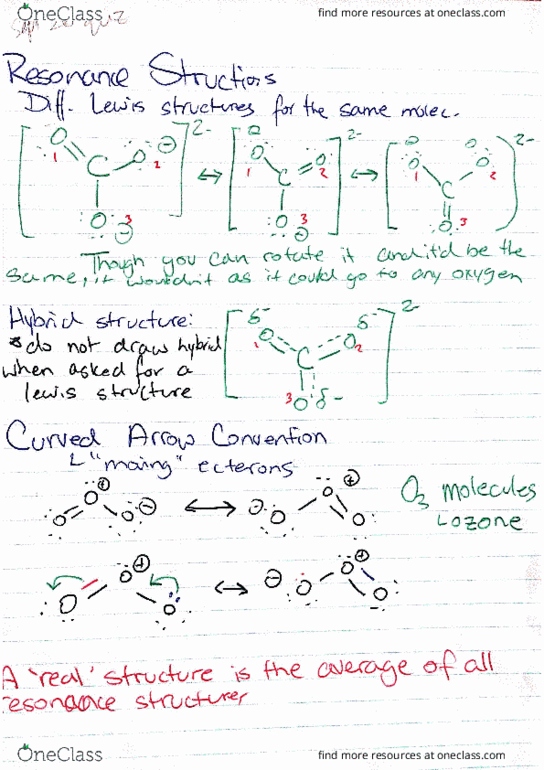 OneClass
find more resources at oneclass.com
Resonance Structions
Diff. Lewis structures for the same molec.
2-
2-
2-
O C O ⊖ ↔ O C O ↔ O C O
1 2 1 2 1 2
O 3 O 3 O 3
⊖ ⊖
Though you can rotate it and it'd be the
same, it wouldn't as it could go to any oxygen
Hybrid structure:
*do not draw hybrid
when asked for a
lewis structure
δ- δ- 2-
O C O
1 2
3 O δ-
Curved Arrow Convention
↳ "moving" ecterons
O O ⊕ O ⊖ ↔ ⊖ O O ⊕ O
O3 molecules
↳ozone
O O ⊕ O ↔ ⊖ O O ⊕ O
A 'real' structure is the average of all
resonance structures
OneClass
find more resources at oneclass.com